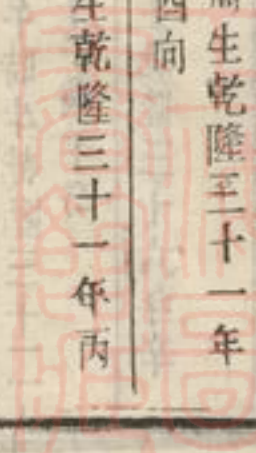 生乾隆三十一年
向
生乾隆三十一年丙